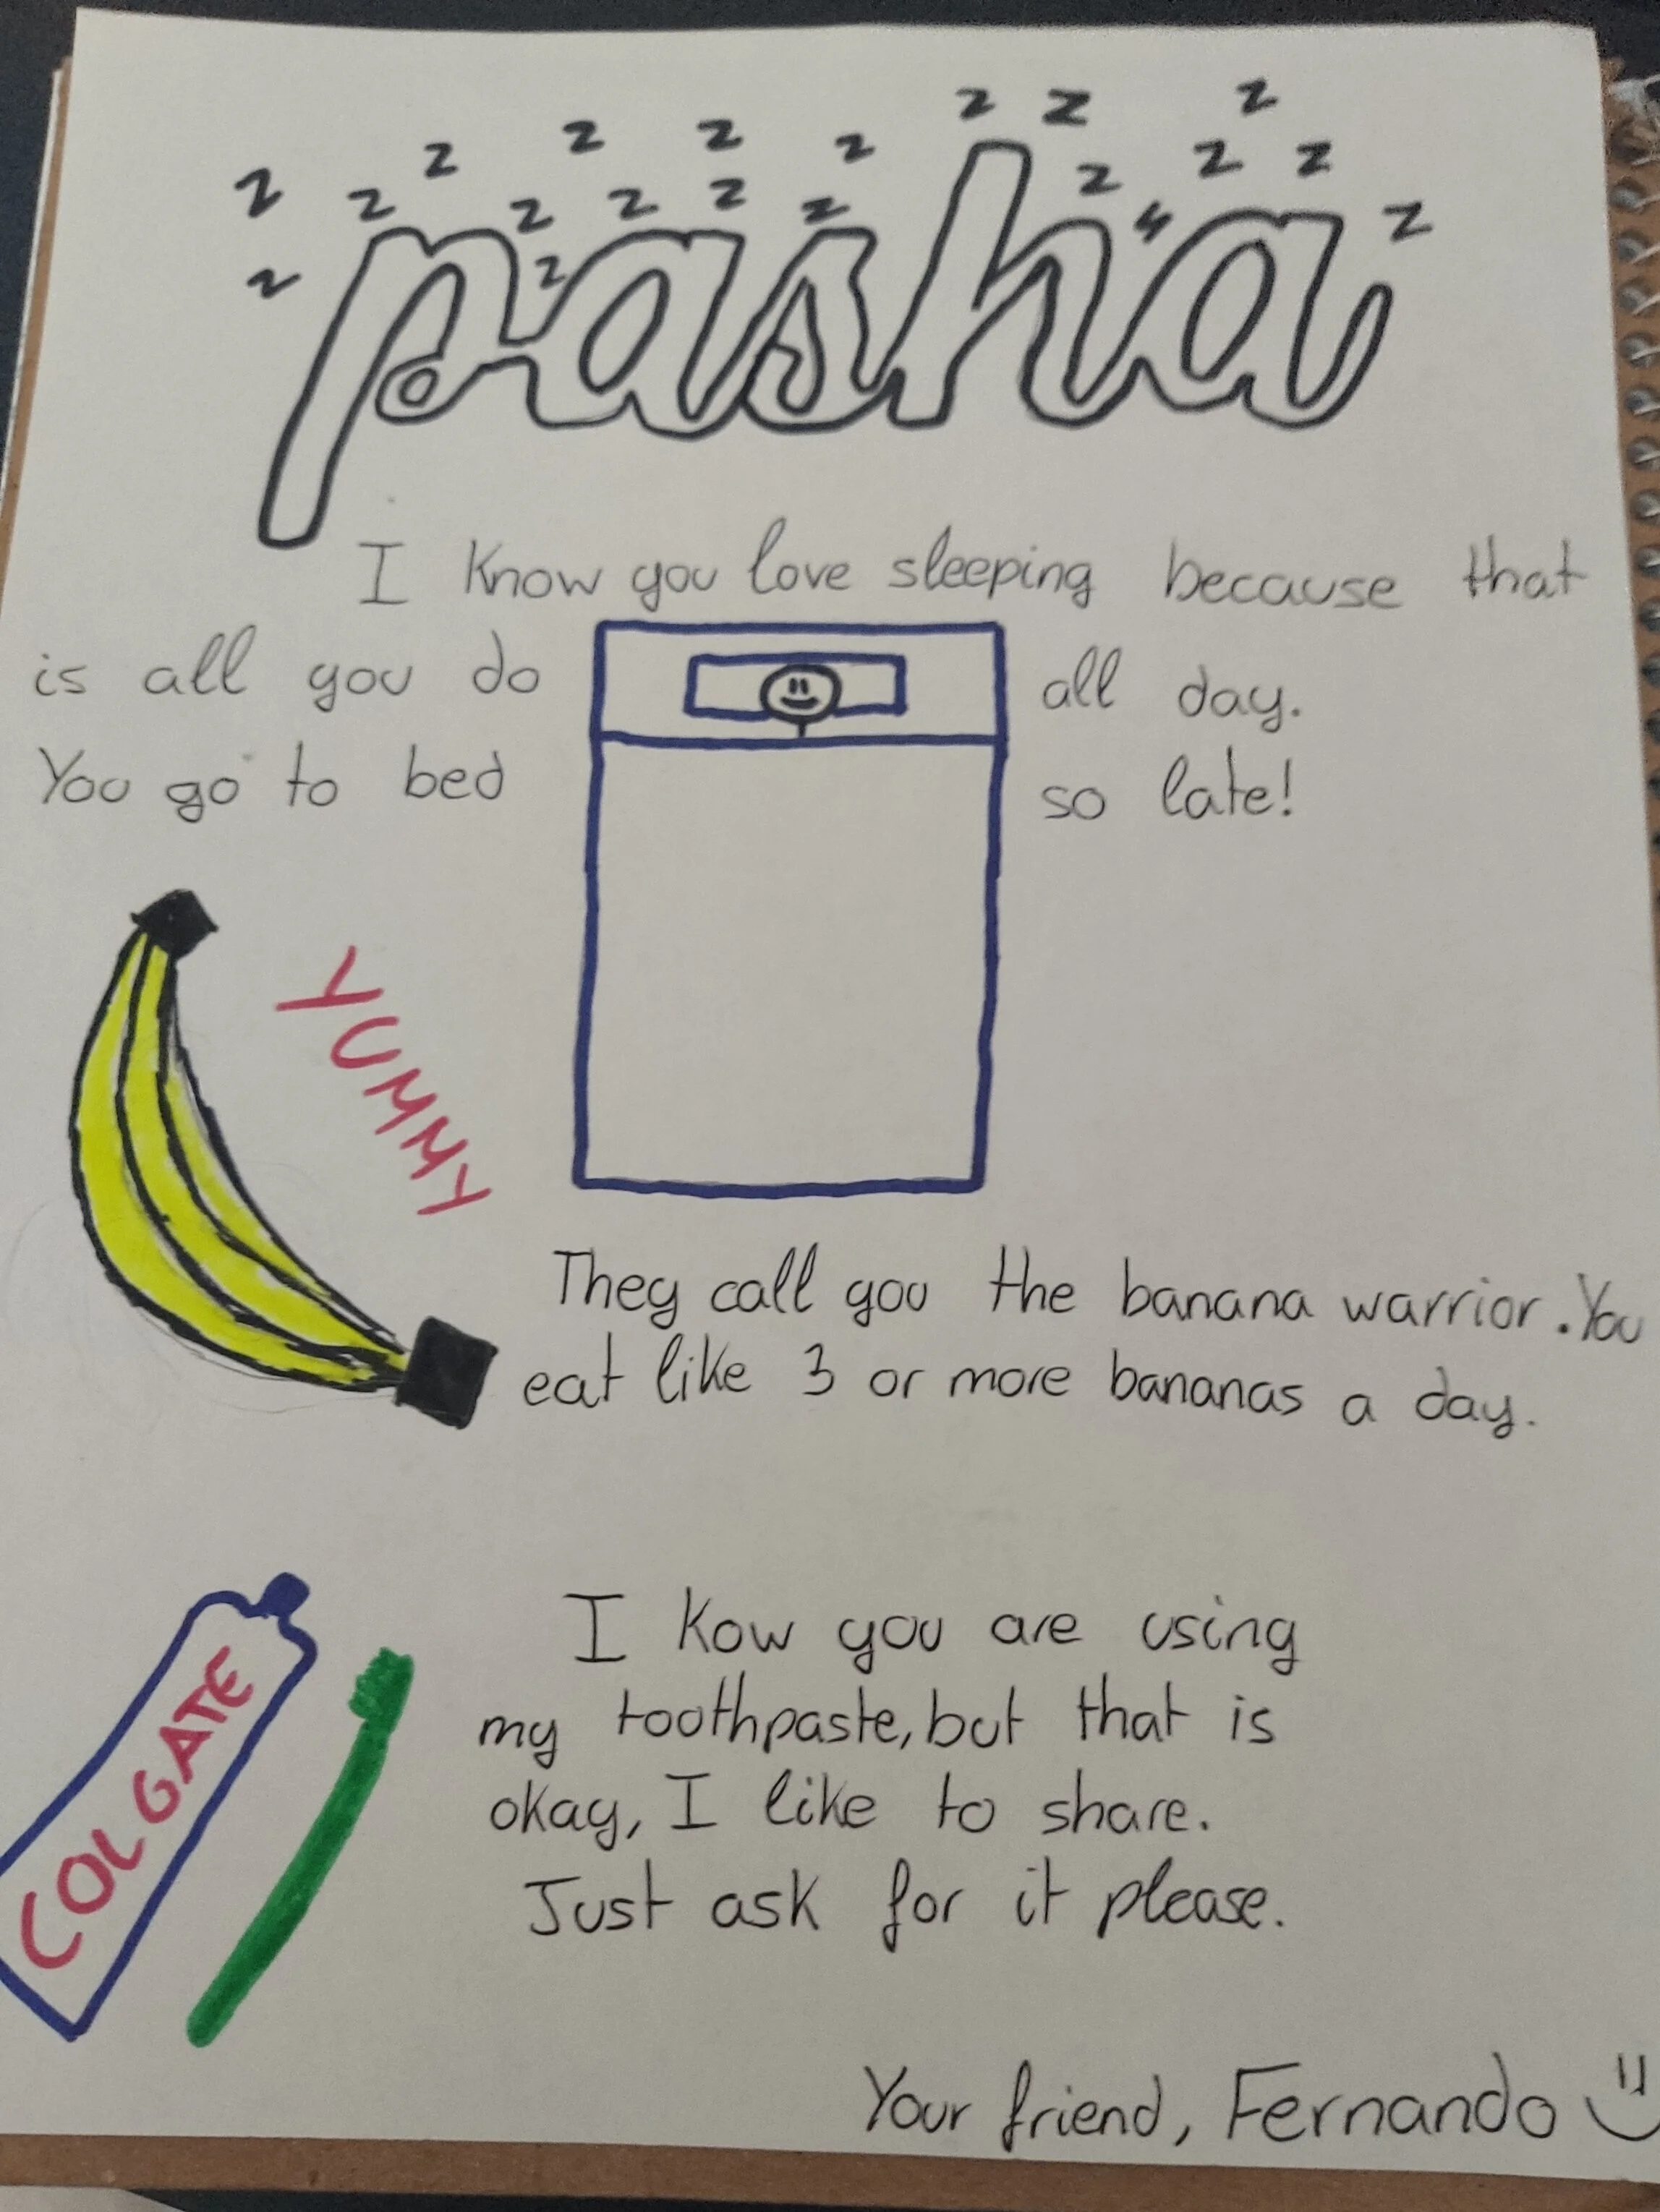 z z z
z z z z z z z
z z z z z z z z
pasha
z z
I know you love sleeping because that
is all you do all day.
You go to bed so late!
YUMMY
They call you the banana warrior. You
eat like 3 or more bananas a day.
I Kow you are using
my toothpaste, but that is
okay, I like to share.
Just ask for it please.
COLGATE
Your friend, Fernando